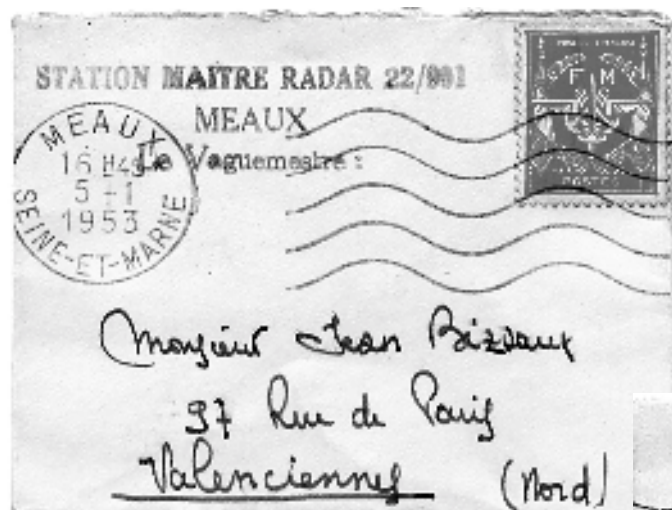 STATION MAITRE RADAR 22/901
MEAUX
Le Vaguemestre :
MEAUX
16 H45
5 - 1
1953
SEINE-ET-MARNE
F M
POSTES
Monsieur Jean
97 Rue de Paris
Valenciennes (Nord)